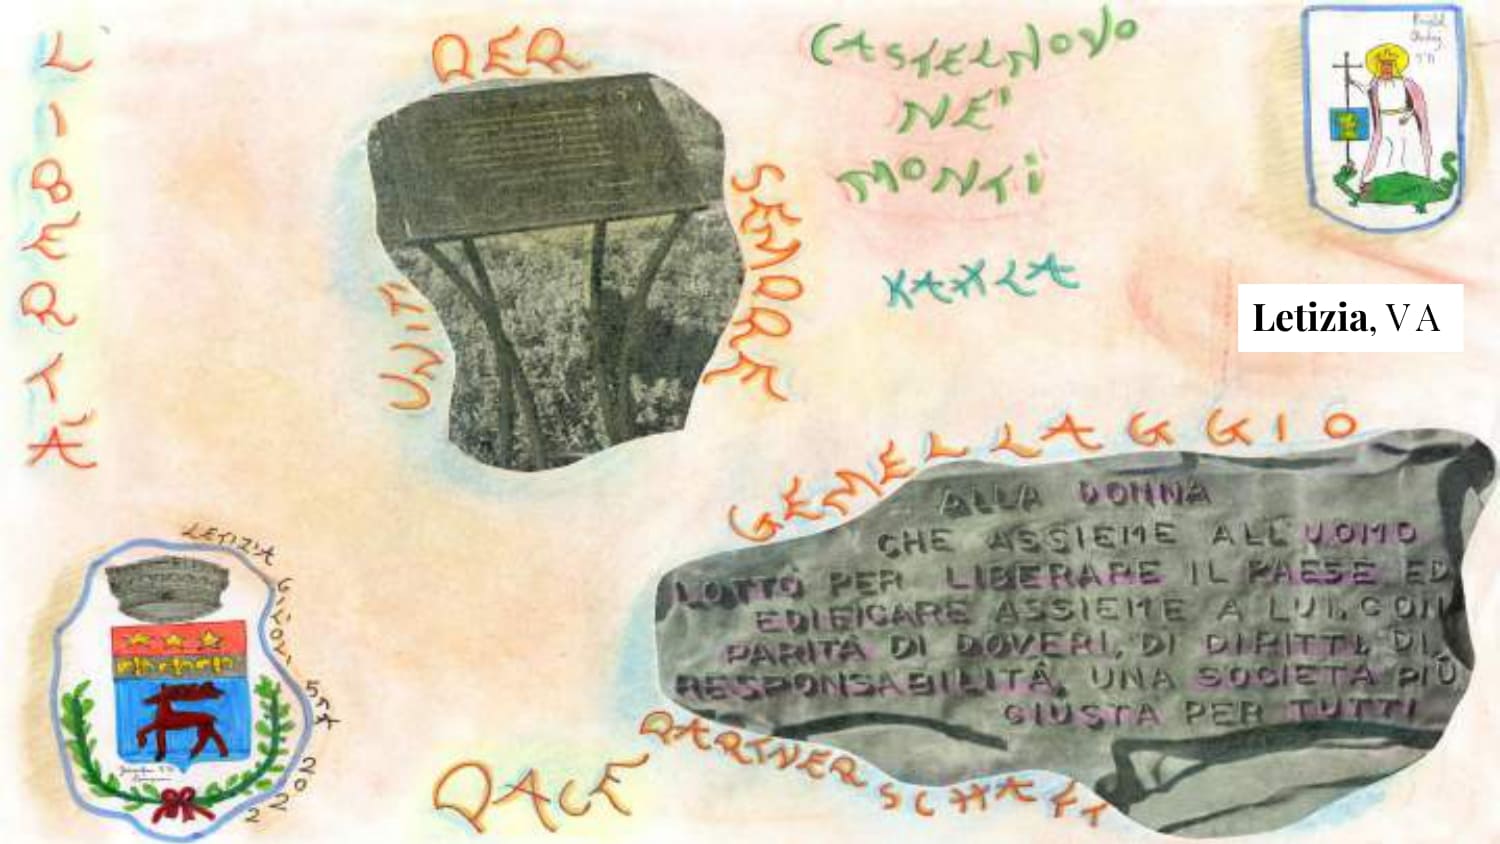 LIBERTÀ
PER
UNITI
SEMPRE
CASTELNOVO
NE'
MONTI
KAHLA
Letizia, V A
GEMELLAGGIO
ALLA DONNA
CHE ASSIEME ALL'UOMO
LOTTÒ PER LIBERARE IL PAESE ED
EDIFICARE ASSIEME A LUI, CON
PARITÀ DI DOVERI, DI DIRITTI, DI
RESPONSABILITÀ, UNA SOCIETÀ PIÙ
GIUSTA PER TUTTI
PARTNERSCHAFT
PACE
LETIZIA GIOVONI 5^A 2022